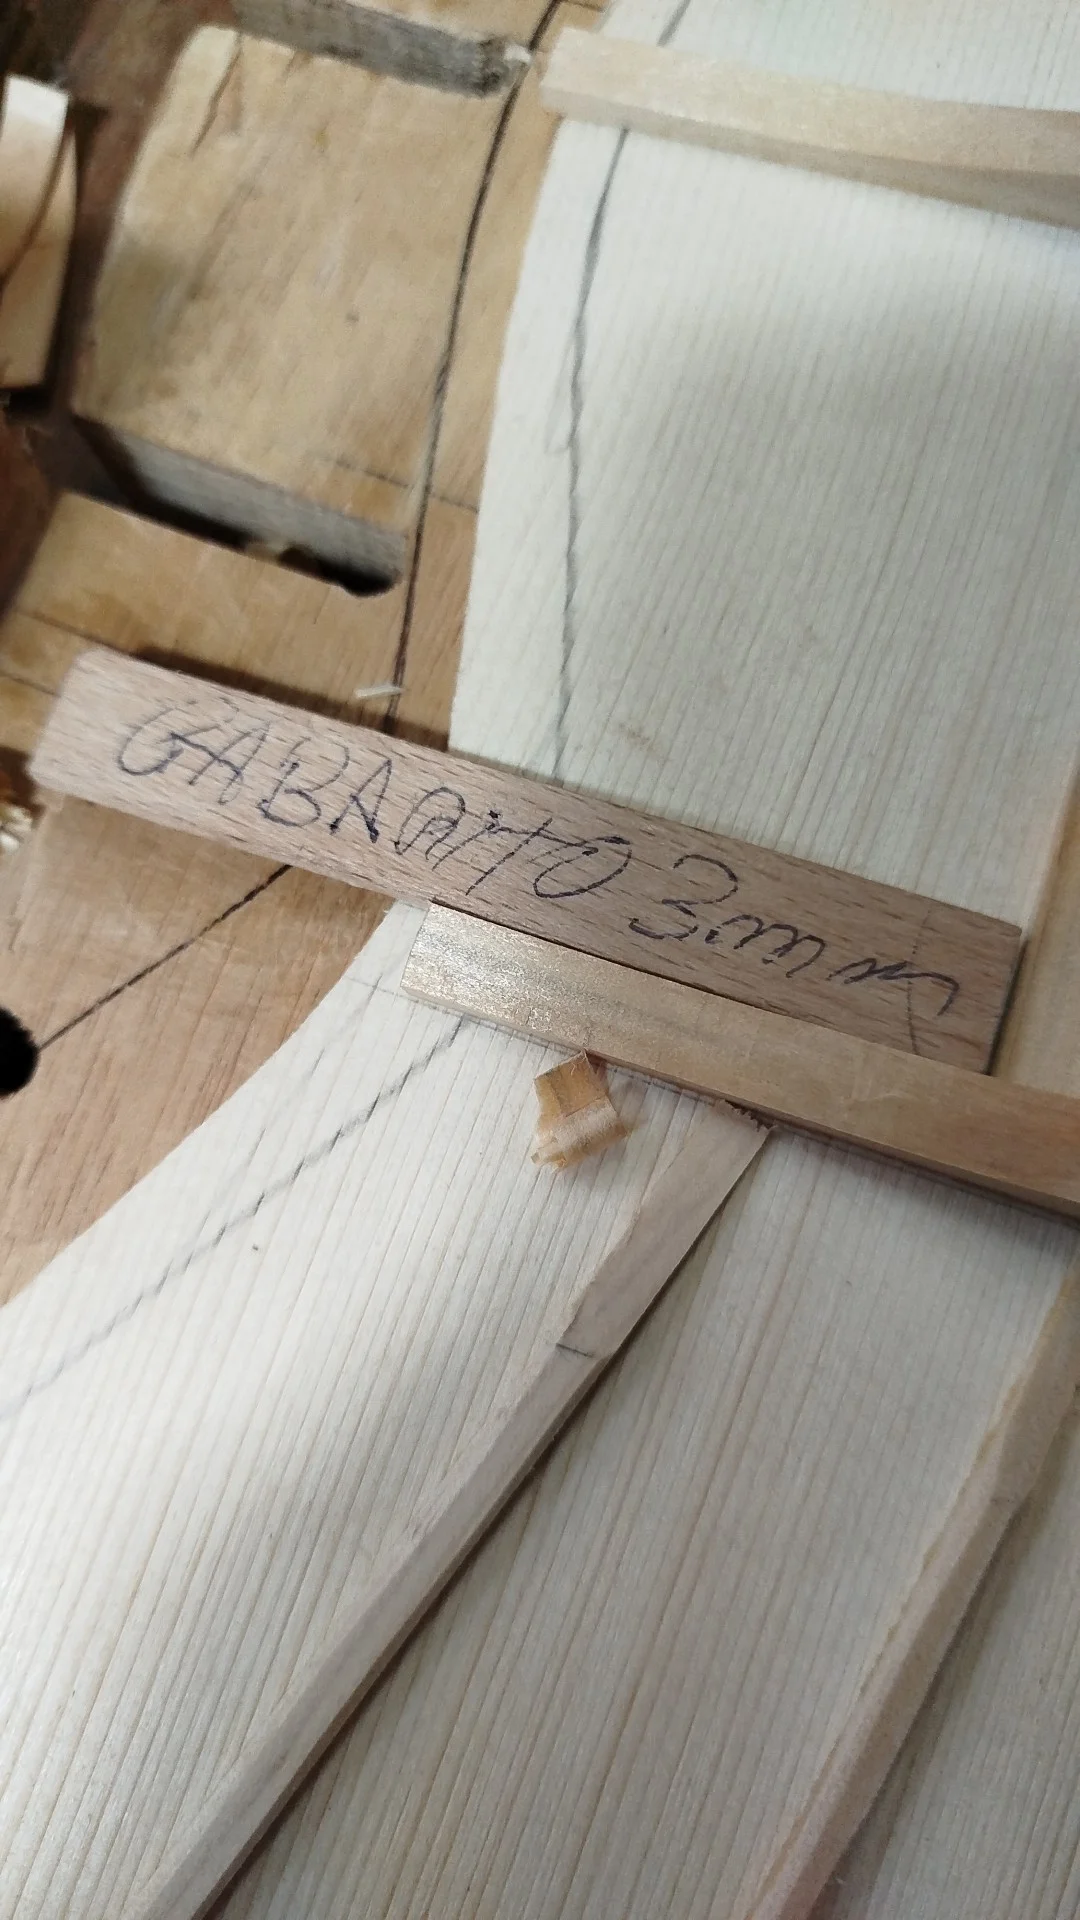 GABARITO 3mm